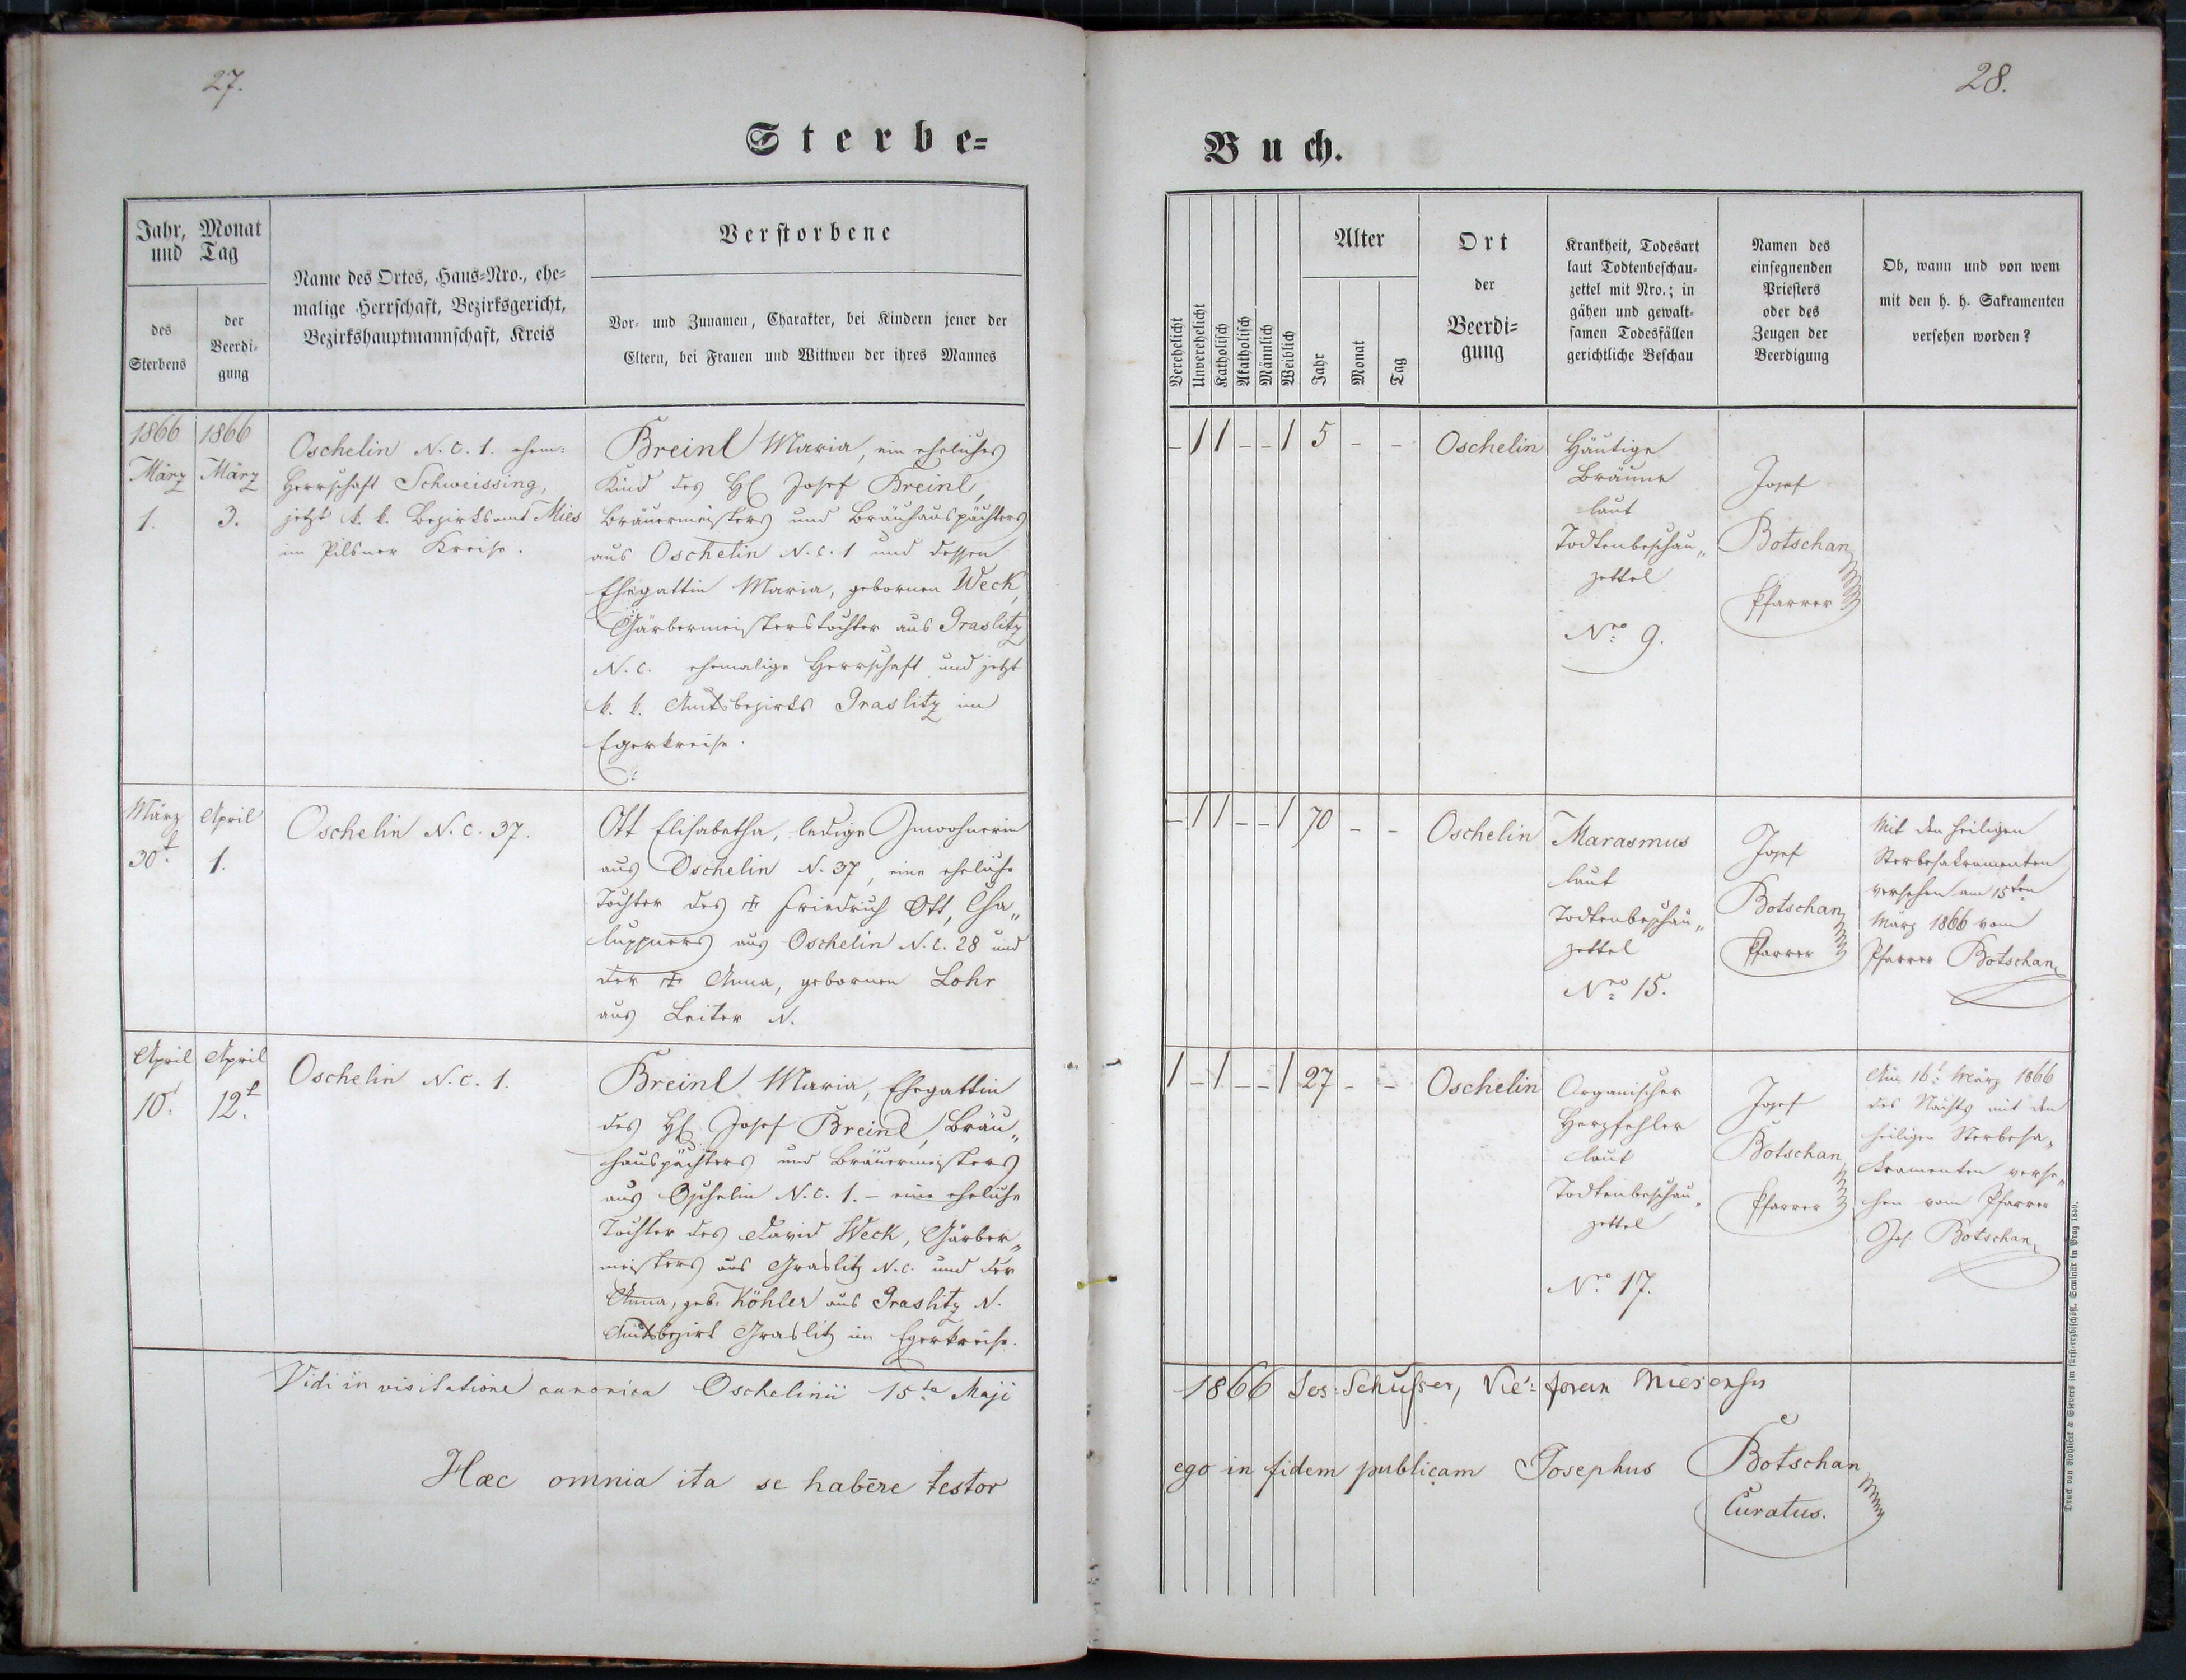 27.
28.
Sterbe=
Buch.
Jahr, Monat
und Tag
des
Sterbens
der
Beerdi-
gung
Name des Ortes, Haus=Nro., ehe=
malige Herrschaft, Bezirksgericht,
Bezirkshauptmannschaft, Kreis
Verstorbene
Vor- und Zunamen, Charakter, bei Kindern jener der
Eltern, bei Frauen und Wittwen der ihres Mannes
Verehelicht
Unverehelicht
Katholisch
Akatholisch
Männlich
Weiblich
Alter
Jahr
Monat
Tag
Ort
der
Beerdi=
gung
Krankheit, Todesart
laut Todtenbeschau-
zettel mit Nro.; in
gähen und gewalt-
samen Todesfällen
gerichtliche Beschau
Namen des
einsegnenden
Priesters
oder des
Zeugen der
Beerdigung
Ob, wann und von wem
mit den h. h. Sakramenten
versehen worden?
1866
März
1.
1866
März
3.
Oschelin N. C. 1. ehem:
Herrschaft Schweissing,
jetzt k. k. Bezirksamt Mies
im Pilsner Kreise.
Breinl Maria, ein eheliches
Kind des H Josef Breinl,
Bräuermeisters und Bräuhauspächters
aus Oschelin N. C. 1 und dessen
Ehegattin Maria, gebornen Weck,
Gärbermeisterstochter aus Graslitz
N. C. ehemalige Herrschaft und jetzt
k. k. Amtsbezirks Graslitz im
Egerkreise.
– 1 1 – – 1 5 – –
Oschelin
Häutige
Bräune
laut
Todtenbeschau„
zettel
Nro 9.
Josef
Botschan
Pfarrer
März
30t.
April
1.
Oschelin N. C. 37.
Ott Elisabetha, ledige Inwohnerin
aus Oschelin N. 37, eine eheliche
Tochter des ✝ Friedrich Ott, Cha„
luppners aus Oschelin N. C. 28 und
der ✝ Anna, gebornen Lohr
aus Leiter N.
– 1 1 – – 1 70 – –
Oschelin
Marasmus
laut
Todtenbeschau„
zettel
Nro 15.
Josef
Botschan
Pfarrer
Mit den heiligen
Sterbesakramenten
versehen am 15ten
März 1866 vom
Pfarrer Botschan
April
10t.
April
12t.
Oschelin N. C. 1.
Breinl Maria, Ehegattin
des H Josef Breinl, Bräu„
hauspächters und Bräuermeisters
aus Oschelin N. C. 1. – eine eheliche
Tochter des David Weck, Gärber„
meisters aus Graslitz N. C. und der
Anna, geb. Köhler aus Graslitz N.
Amtsbezirk Graslitz im Egerkreise.
1 – 1 – – 1 27 – –
Oschelin
Organischer
Herzfehler
laut
Todtenbeschau„
zettel
Nro 17.
Josef
Botschan
Pfarrer
Am 16t. März 1866
des Nachts mit den
heiligen Sterbesa„
kramenten verse„
hen vom Pfarrer
Jos. Botschan
Vidi in visitatione canonica Oschelinii 15ta Maji
1866 Jos: Schusser, Vic: foran Miesensis
Hæc omnia ita se habēre testor
ego in fidem publicam Josephus Botschan
Curatus.